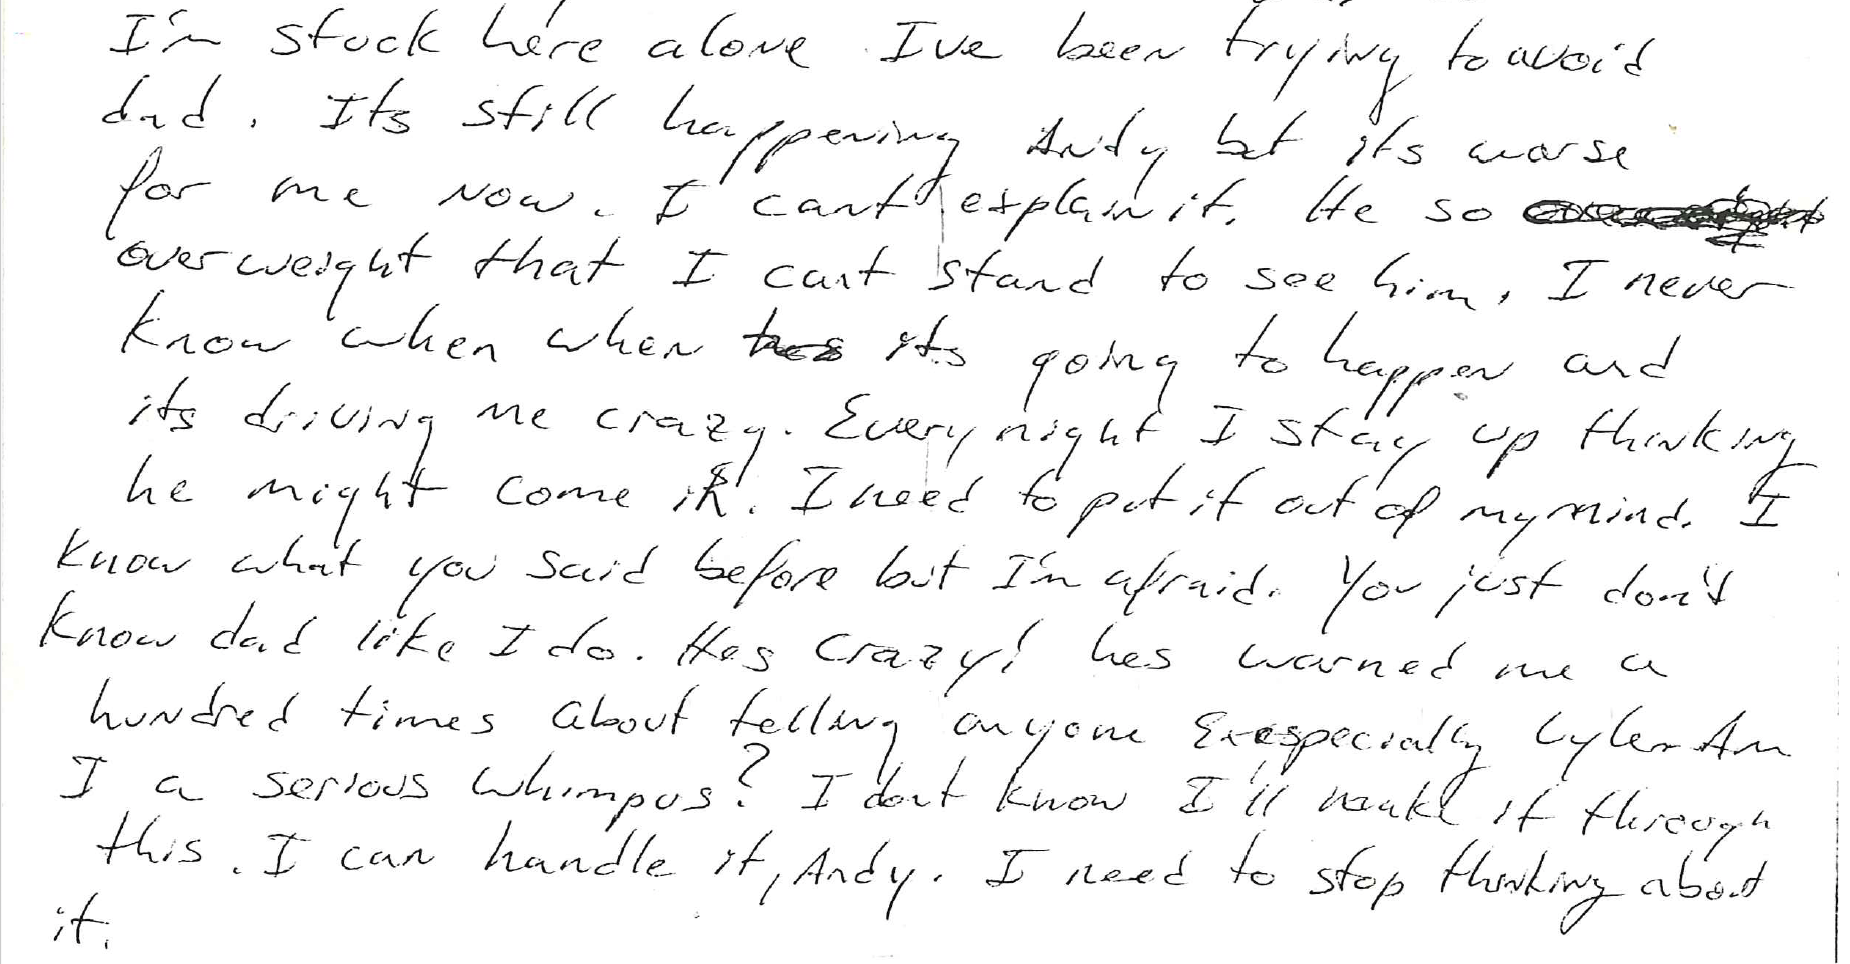 I'm stuck here alone Ive been trying to avoid
dad. Its still happening Andy but its worse
for me now. I cant explain it. He so
overweight that I cant stand to see him. I never
know when when its going to happen and
its driving me crazy. Every night I stay up thinking
he might come in. I need to put it out of my mind. I
know what you said before but I'm afraid. You just don't
know dad like I do. Hes crazy! hes warned me a
hundred times about telling anyone Exespecially Lyle. Am
I a serious whimpus? I dont know I'll make it through
this. I can handle it, Andy. I need to stop thinking about
it.